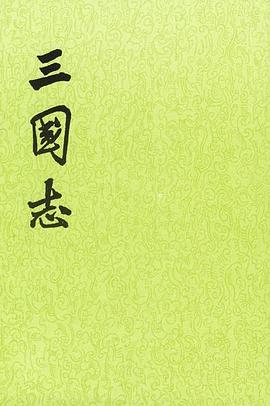 三國志